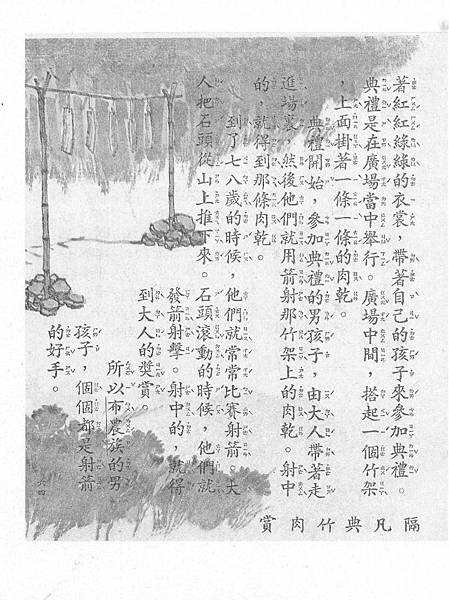 著紅紅綠綠的衣裳，帶著自己的孩子來參加典禮。
典禮是在廣場當中舉行。廣場中間，搭起一個竹架
，上面掛著一條一條的肉乾。
典禮開始，參加典禮的男孩子，由大人帶著走
進場裏，然後他們就用箭射那竹架上的肉乾。射中
的，就得到那條肉乾。
到了七八歲的時候，他們就常常比賽射箭。大
人把石頭從山上推下來。石頭滾動的時候，他們就
發箭射擊。射中的，就得
到大人的獎賞。
所以布農族的男
孩子，個個都是射箭
的好手。
隔凡典竹肉賞